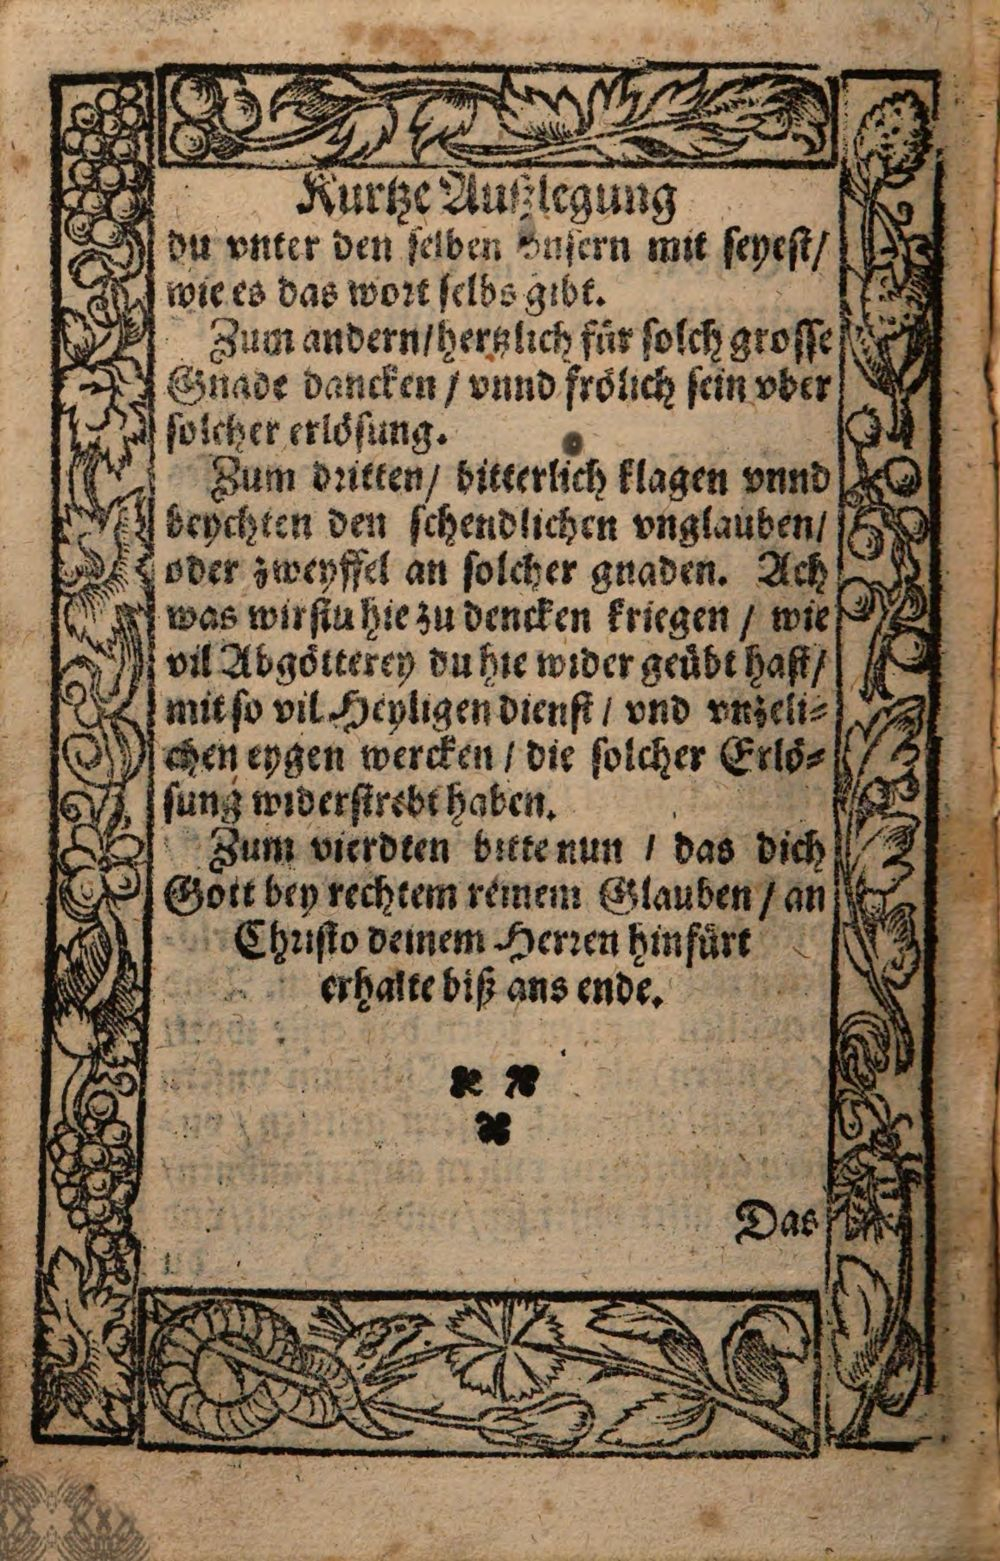 Kurtze Außlegung
du vnter den selben vnsern mit seyest/
wie es das wort selbs gibt.
Zum andern/hertzlich für solch grosse
Gnade dancken / vnnd frölich sein vber
solcher erlösung.
Zum dritten/ bitterlich klagen vnnd
beychten den schendlichen vnglauben/
oder zweyffel an solcher gnaden. Ach
was wirstu hie zu dencken kriegen / wie
vil Abgötterey du hie wider geübt hast/
mit so vil Heyligen dienst / vnd vnzeli-
chen eygen wercken / die solcher Erlö-
sung widerstrebt haben.
Zum vierdten bitte nun / das dich
Gott bey rechtem reinem Glauben / an
Christo deinem Herren hinfürt
erhalte biß ans ende.
Das